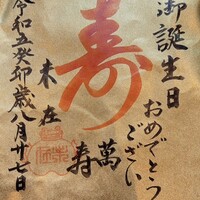 御誕生日
おめでとう
ござい
寿
萬
寿
未在
令和五癸卯歳八月廿七日